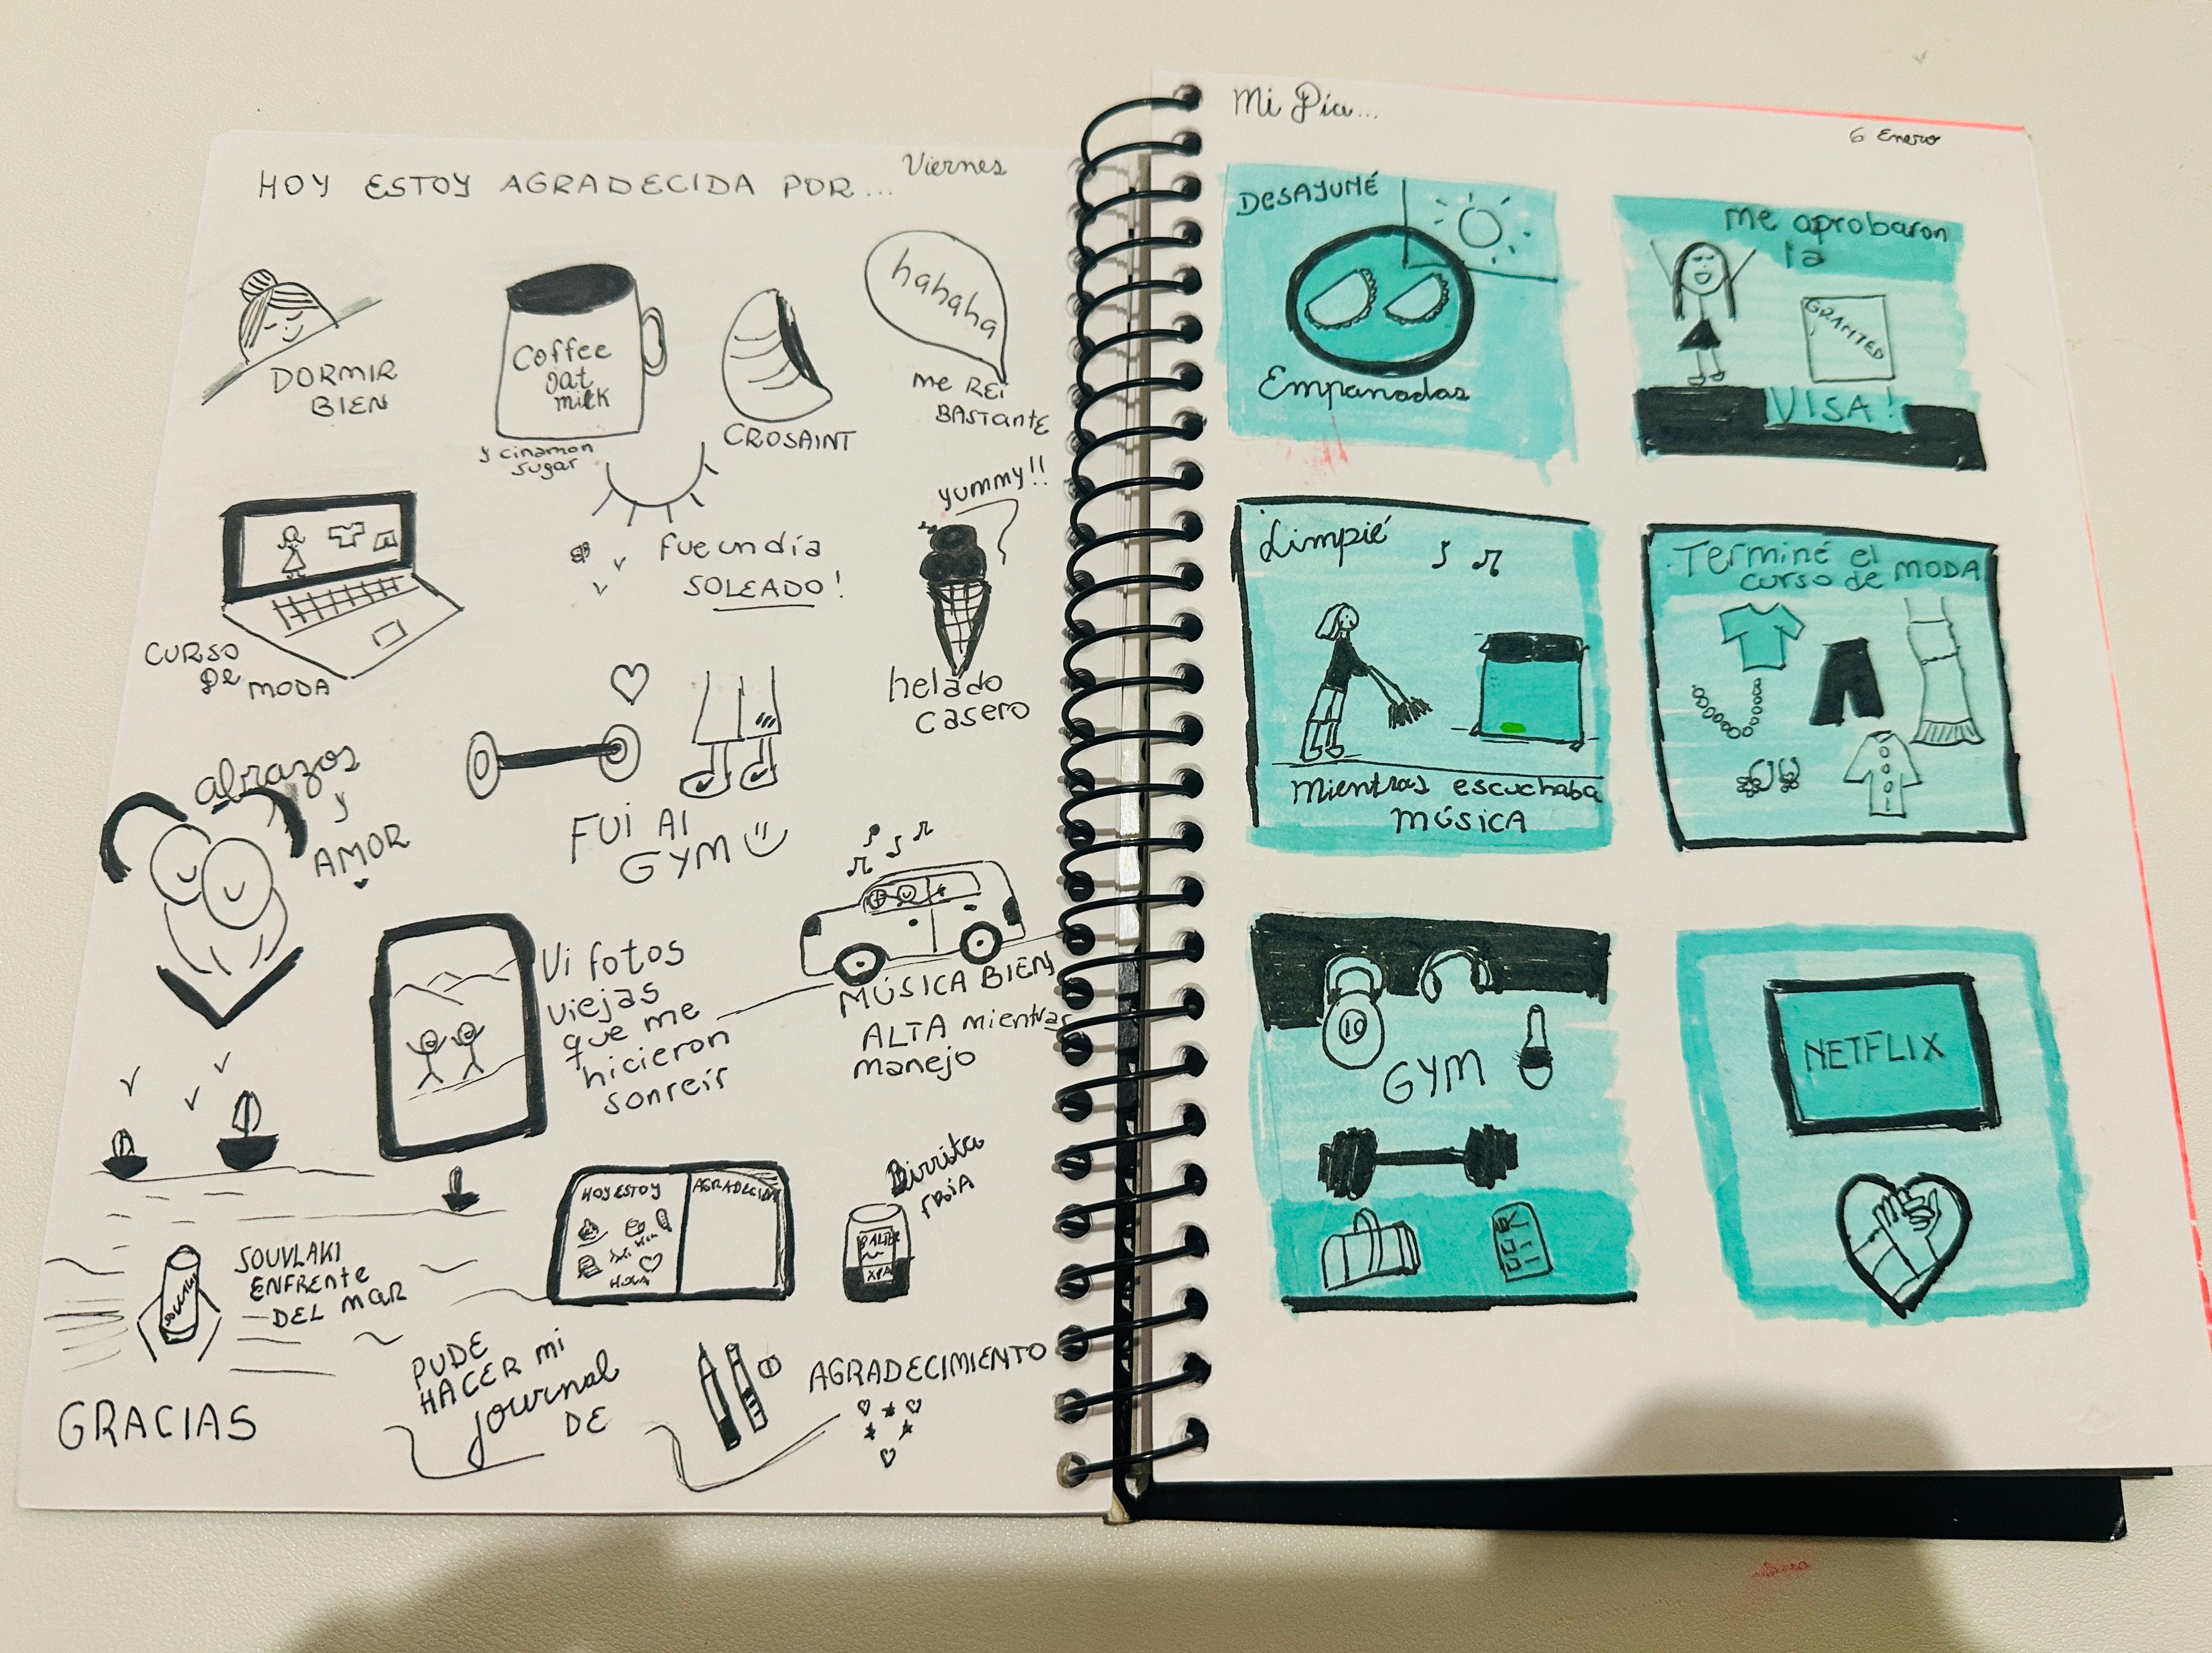 HOY ESTOY AGRADECIDA POR...
Viernes
DORMIR
BIEN
Coffee
oat
milk
y cinamon
sugar
CROSAINT
hahaha
me REI
BASTANTE
CURSO
DE
MODA
FUE un día
SOLEADO!
yummy!!
helado
casero
abrazos
y
AMOR
FUI Al
GYM
Vi fotos
viejas
que me
hicieron
sonreír
MÚSICA BIEN
ALTA mientras
manejo
SOUVLAKI
ENFRENTE
DEL MAR
HOY ESTOY
AGRADECIDA
HOLA
Birrita
FRÍA
BALTER
XPA
PUDE
HACER mi
journal
DE
AGRADECIMIENTO
GRACIAS
Mi Día...
6 Enero
DESAYUNÉ
Empanadas
me aprobaron
la
GRANTED
VISA!
Limpié
mientras escuchaba
MÚSICA
Terminé el
curso de MODA
10
GYM
NETFLIX